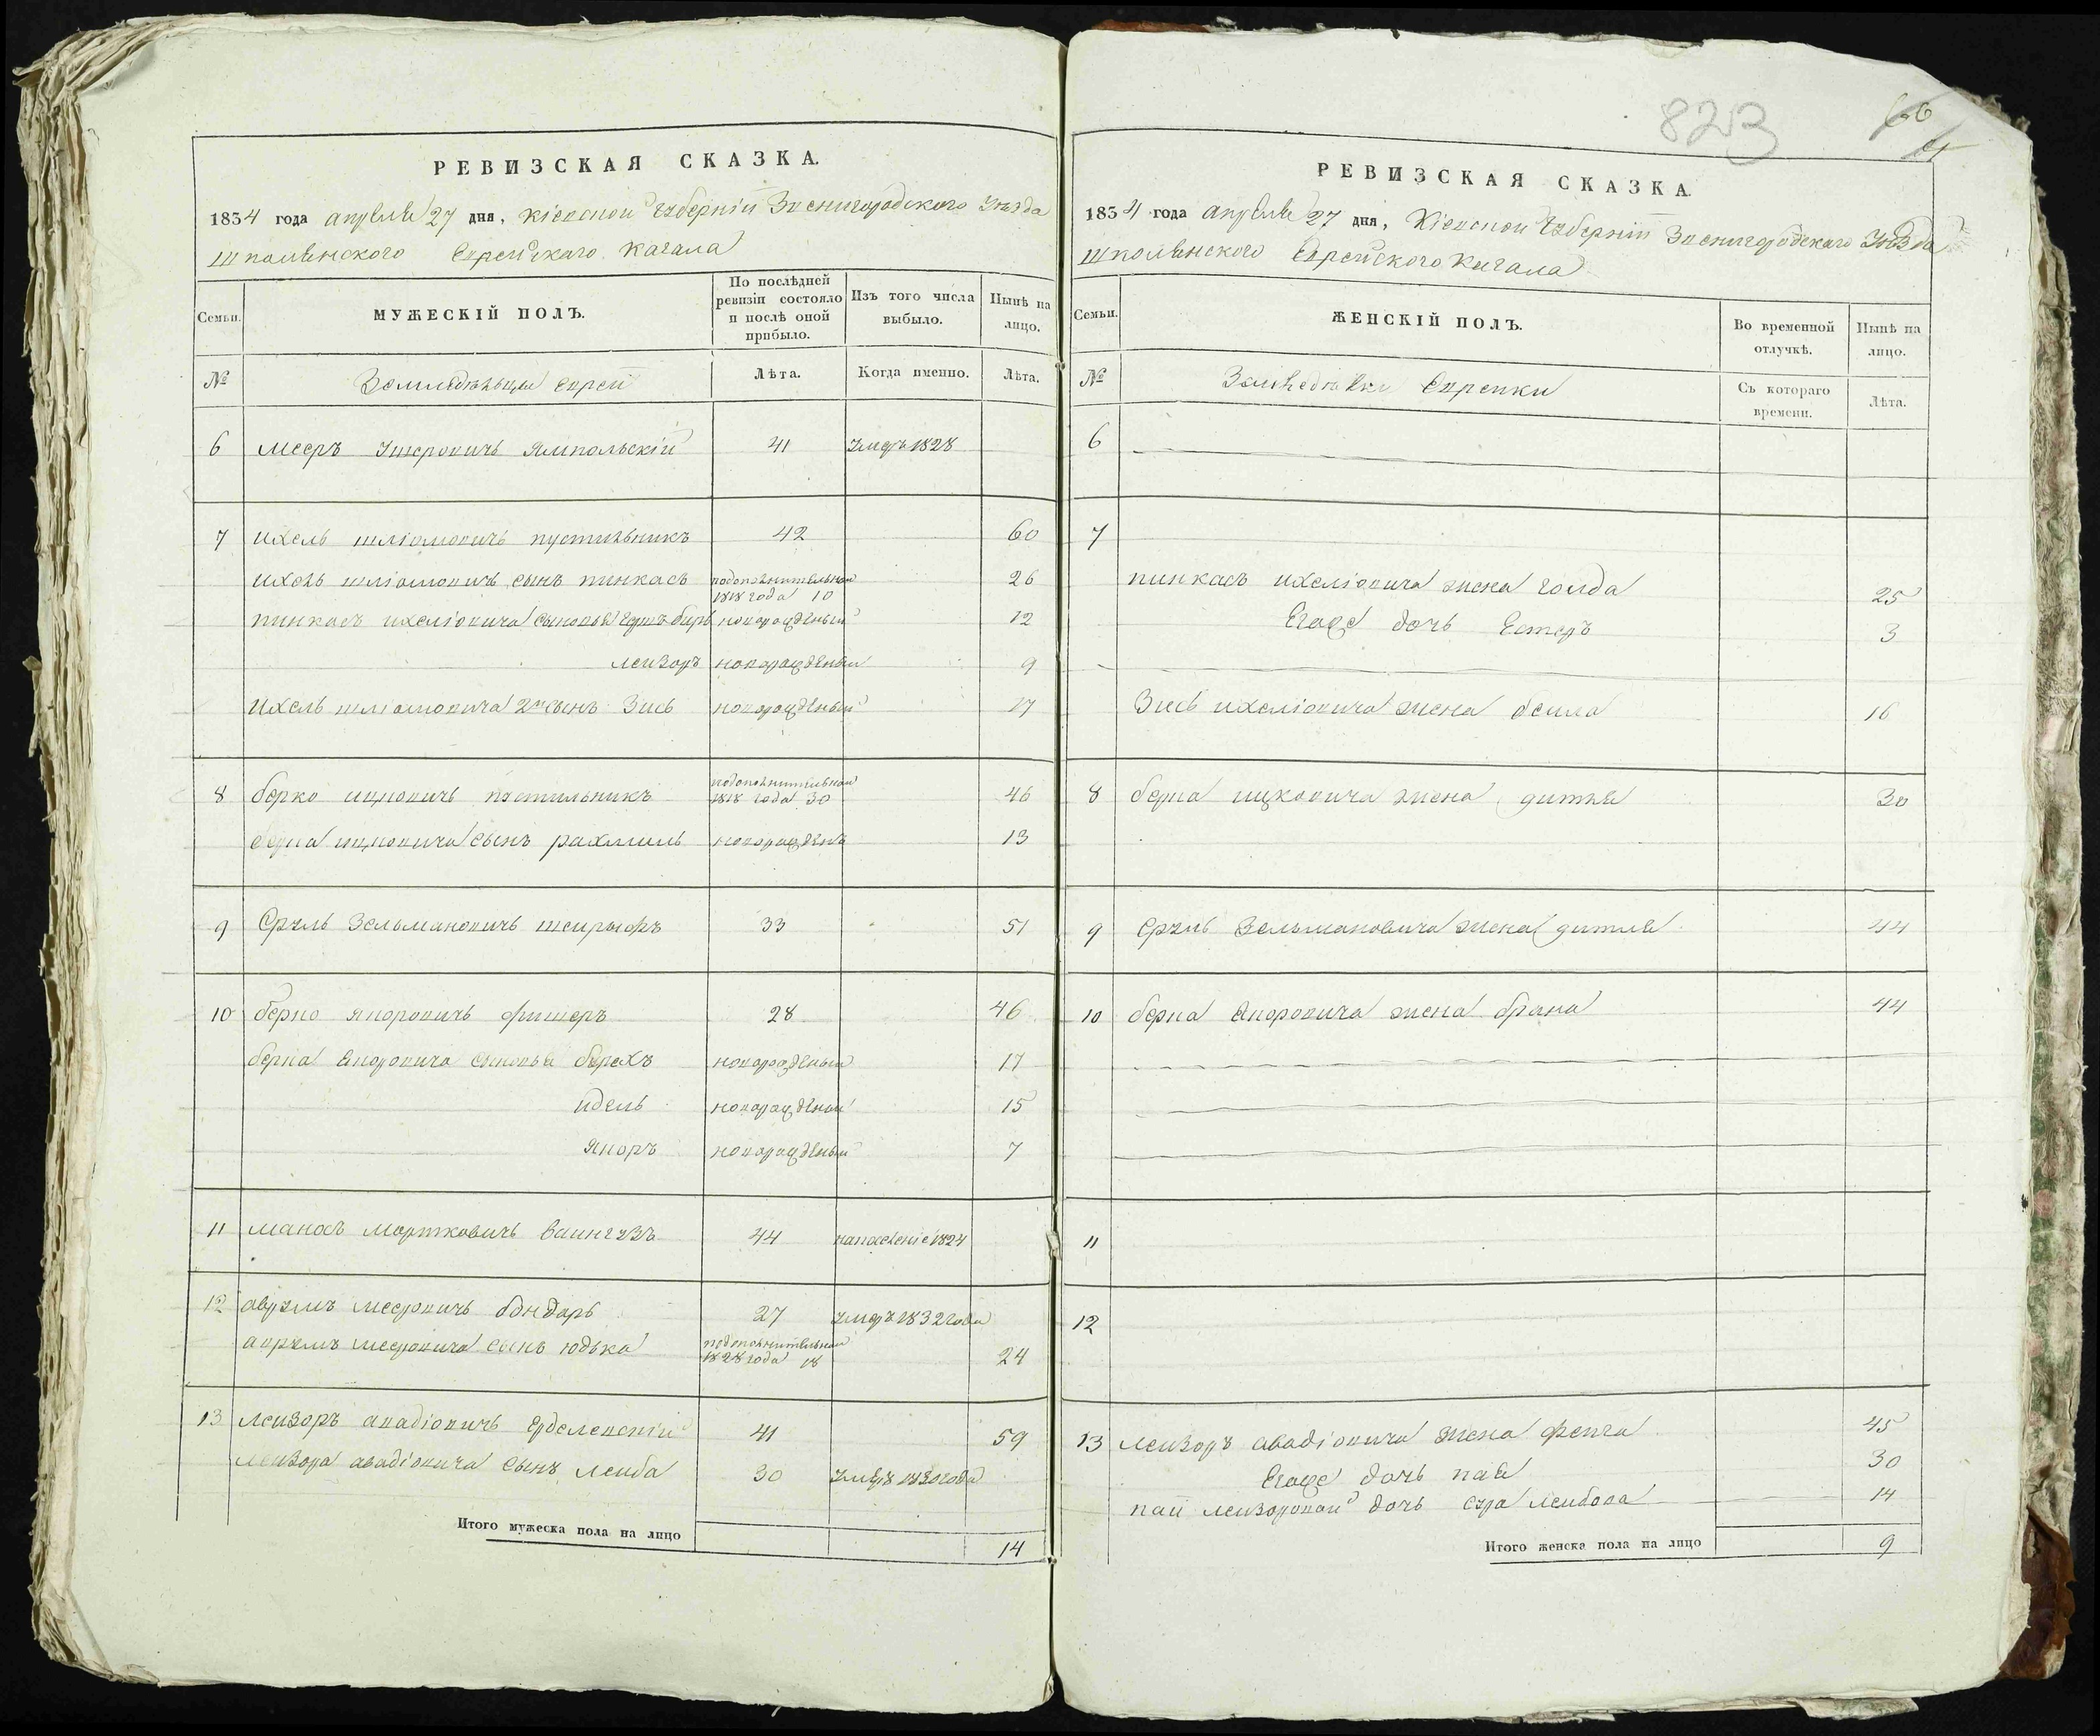 823
66
РЕВИЗСКАЯ СКАЗКА.
1834 года апреля 27 дня, Кіевской Губерніи Звенигородского Уезда
Шполянского Еврейского Кагала
Семьи. МУЖЕСКІЙ ПОЛЪ. По послѣдней ревизіи состояло и послѣ оной прибыло. Изъ того числа выбыло. Нынѣ на лицо.
№ Земледельцы Евреи Лѣта. Когда именно. Лѣта.
6 Мееръ Ушеровичь Ямпольскій 41 Умеръ 1828
7 Ихель Шліомовичь Пустильникъ 42 60
Ихель Шліомовичь сынъ Пинкасъ подополнительной 1818 года 10 26
Пинкасъ Ихеліовича сыновья Герш Бер новорожденый 12
Лейзоръ новорожденый 9
Ихель Шліомовича 2й сынъ Зись новорожденый 17
8 Берко Ицковичь Пустильникъ подополнительной 1818 года 30 46
Берка Ицковича сынъ Рахмиль новорожденъ 13
9 Сруль Зельмановичь 33 51
10 Берко Якоровичь Фишеръ 28 46
Берка Якоровича сыновья Берехъ новорожденый 17
Идель новорожденый 15
Якоръ новорожденый 7
11 Манась Мортковичь Ваингузъ 44 1824
12 Аврумъ Мееровичь Бондарь 27 Умеръ 1832 года
Аврумъ Мееровича сынъ Юдька подополнительной 1828 года 18 24
13 Лейзоръ Авадіовичь 41 59
Лейзора Авадіовича сынъ Лейба 30 Умеръ 1830 года
Итого мужеска пола на лицо 14
РЕВИЗСКАЯ СКАЗКА.
1834 года апреля 27 дня, Кіевской Губерніи Звенигородского Уезда
Шполянского Еврейского Кагала
Семьи. ЖЕНСКІЙ ПОЛЪ. Во временной отлучкѣ. Нынѣ на лицо.
№ Еврейки Съ котораго времени. Лѣта.
6
7
Пинкасъ Ихеліовича жена Голда 25
Егоже дочь Естеръ 3
Зись Ихеліовича жена Бейла 16
8 Берка Ицковича жена Гитля 30
9 Сруль Зельмановича жена Гитля 44
10 Берка Якоровича жена Брана 44
11
12
13 Лейзоръ Авадіовича жена Фейга 45
Егоже дочь Пая 30
Паи Лейзоровой дочь Сура Лейбова 14
Итого женска пола на лицо 9